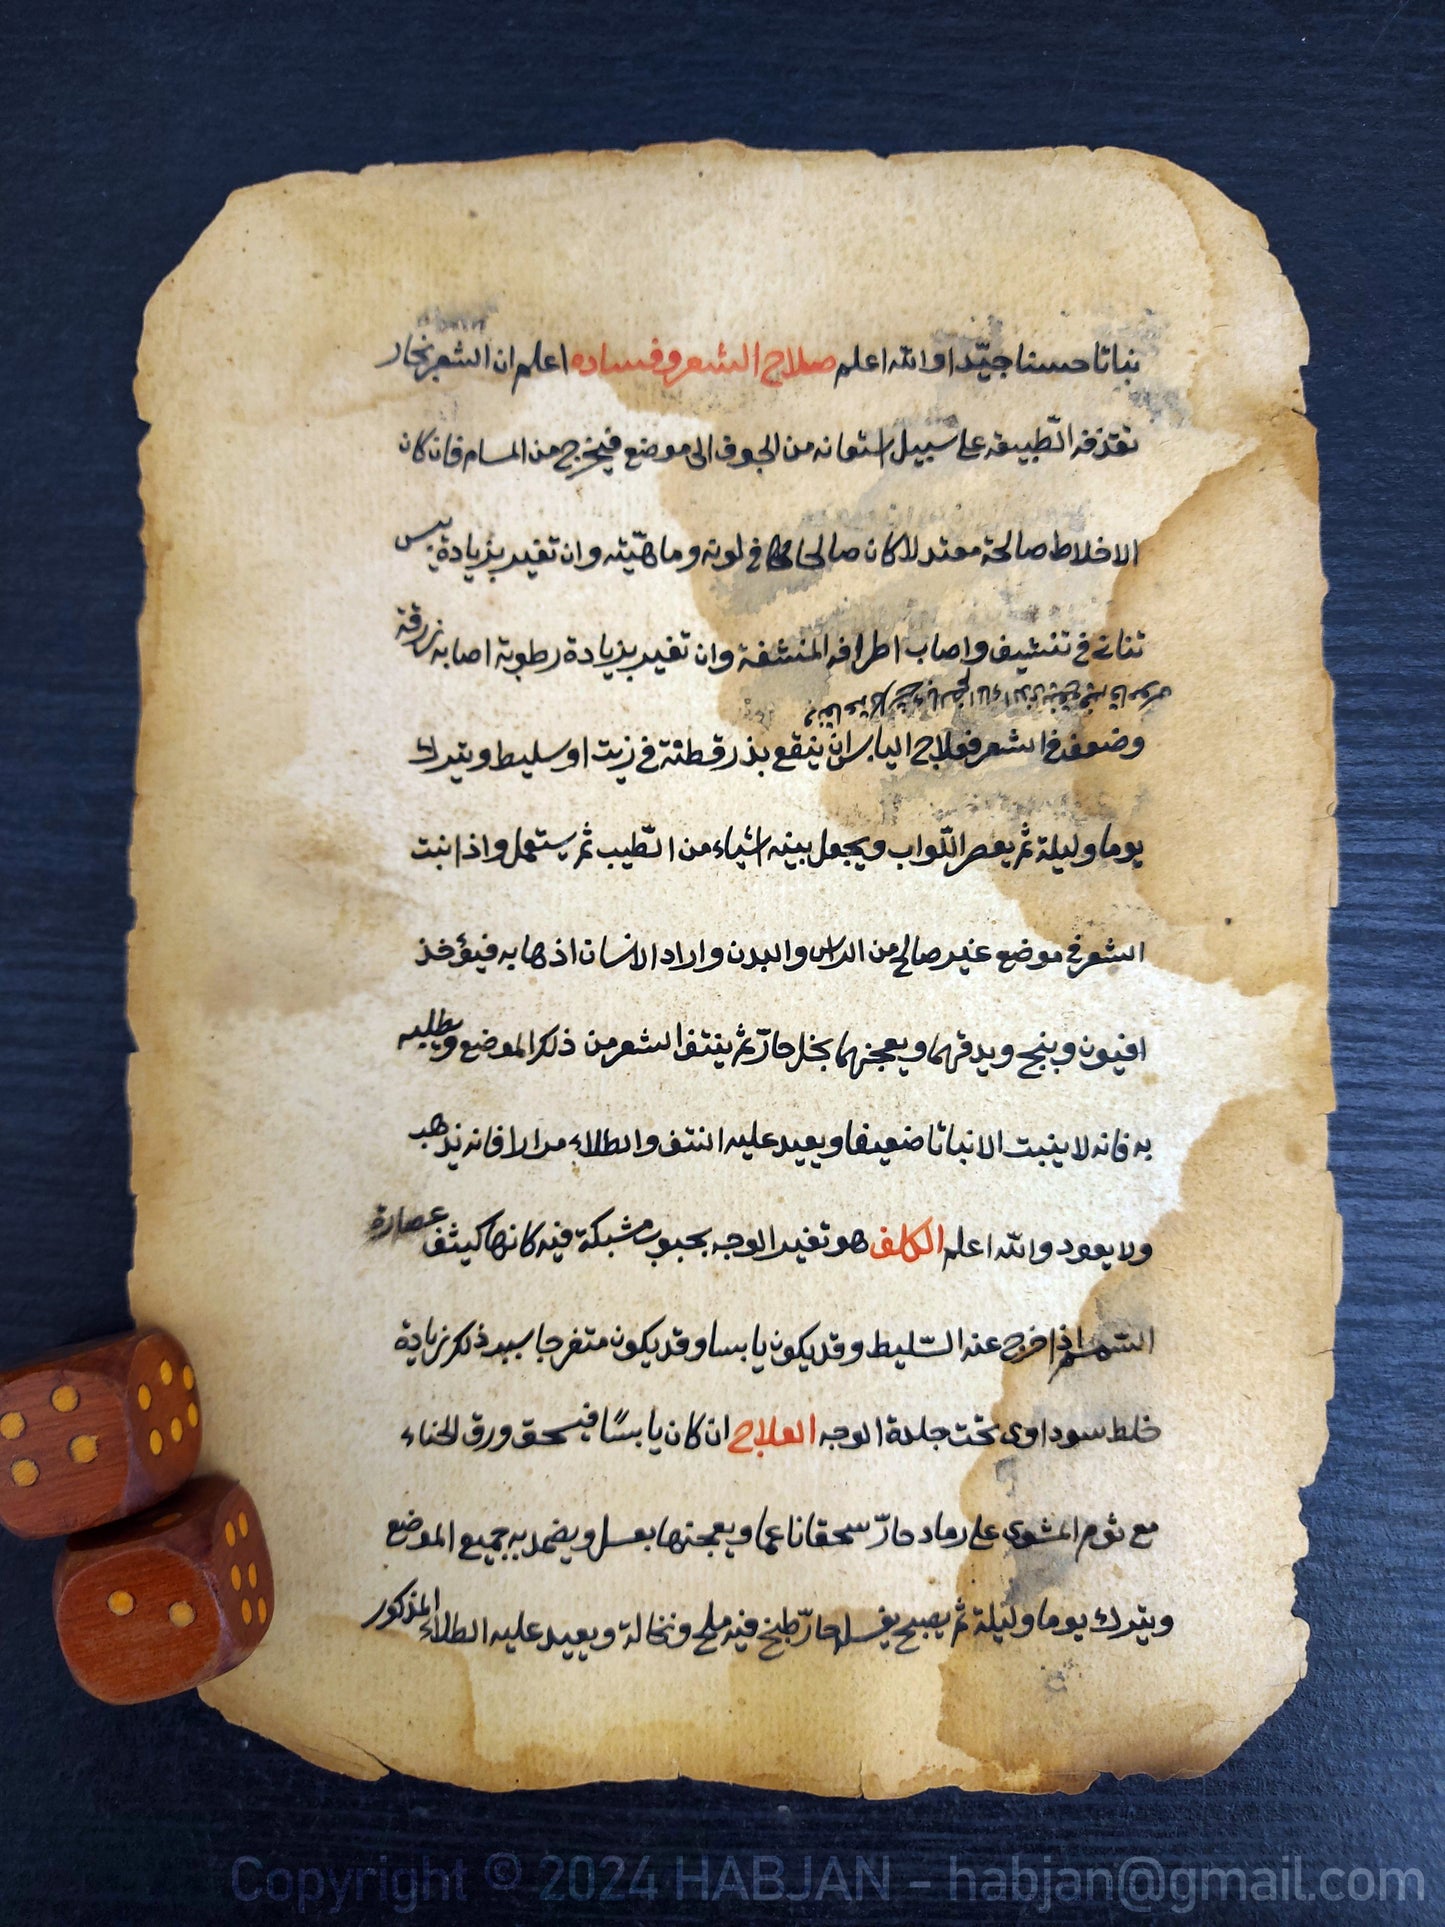 نباتا حسنا جيّدا والله اعلم صلاح الشعر وفساده اعلم ان الشعر بخار
تقذفه الطبيعة على سبيل استغنائه من الجوف الى موضع فيخرج من المسام فان كان
الاخلاط صالحة معتدلا كان صالحا في لونه وماهيّته وان تغير بزيادة يبس
في تنشيف واصاب اطرافه المنشفة وان تغير بزيادة رطوبة اصابه زرقة
وضعف في الشعر فعلاج اليابس ان ينقع بذر قطنة في زيت او سليط ويترك
يوما وليلة ثم يعصر اللّواب ويجعل بينه اشياء من الطّيب ثم يستعمل واذا نبت
الشعر في موضع غير صالح من الراس والبدن واراد الانسان اذهابه فيؤخذ
افيون وبنج ويدقهما ويعجنهما بخل حارّ ثم ينتف الشعر من ذلك الموضع ويطليه
به فانه لا ينبت الا نباتا ضعيفا ويعيد عليه النتف والطلاء مرارا فانه يذهب
ولا يعود والله اعلم الكلف هو تغير الوجه بحبوب مشبكة فيه كانها كيثف عصارة
السمسم اذا خرج عنه السّليط وقد يكون يابسا وقد يكون متفرجا سببه ذلك زيادة
خلط سوداوى تحت جلدة الوجه العلاج ان كان يابسًا فيسحق ورق الحناء
مع ثوم المشوى على رماد حارّ سحقا ناعما ويعجنها بعسل ويضمد به جميع الموضع
ويترك يوما وليلة ثم يصبح يغسل حارّ طبخ فيه ملح ونخالة ويعيد عليه الطلاء المذكور
Copyright © 2024 HABJAN - habjan@gmail.com